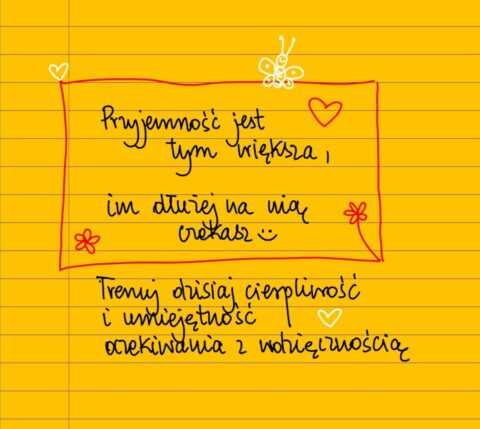 Przyjemność jest
tym większa,
im dłużej na nią
czekasz
Trenuj dzisiaj cierpliwość
i umiejętność
oczekiwania z wdzięcznością